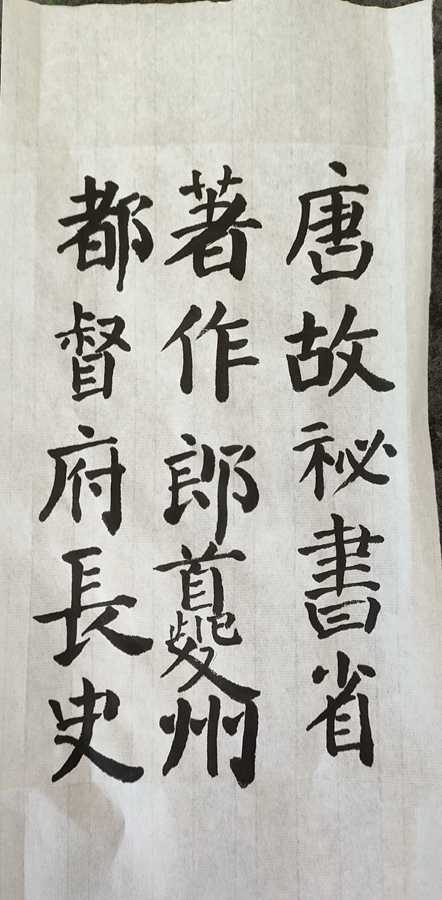 唐故祕書省
著作郎夔州
都督府長史